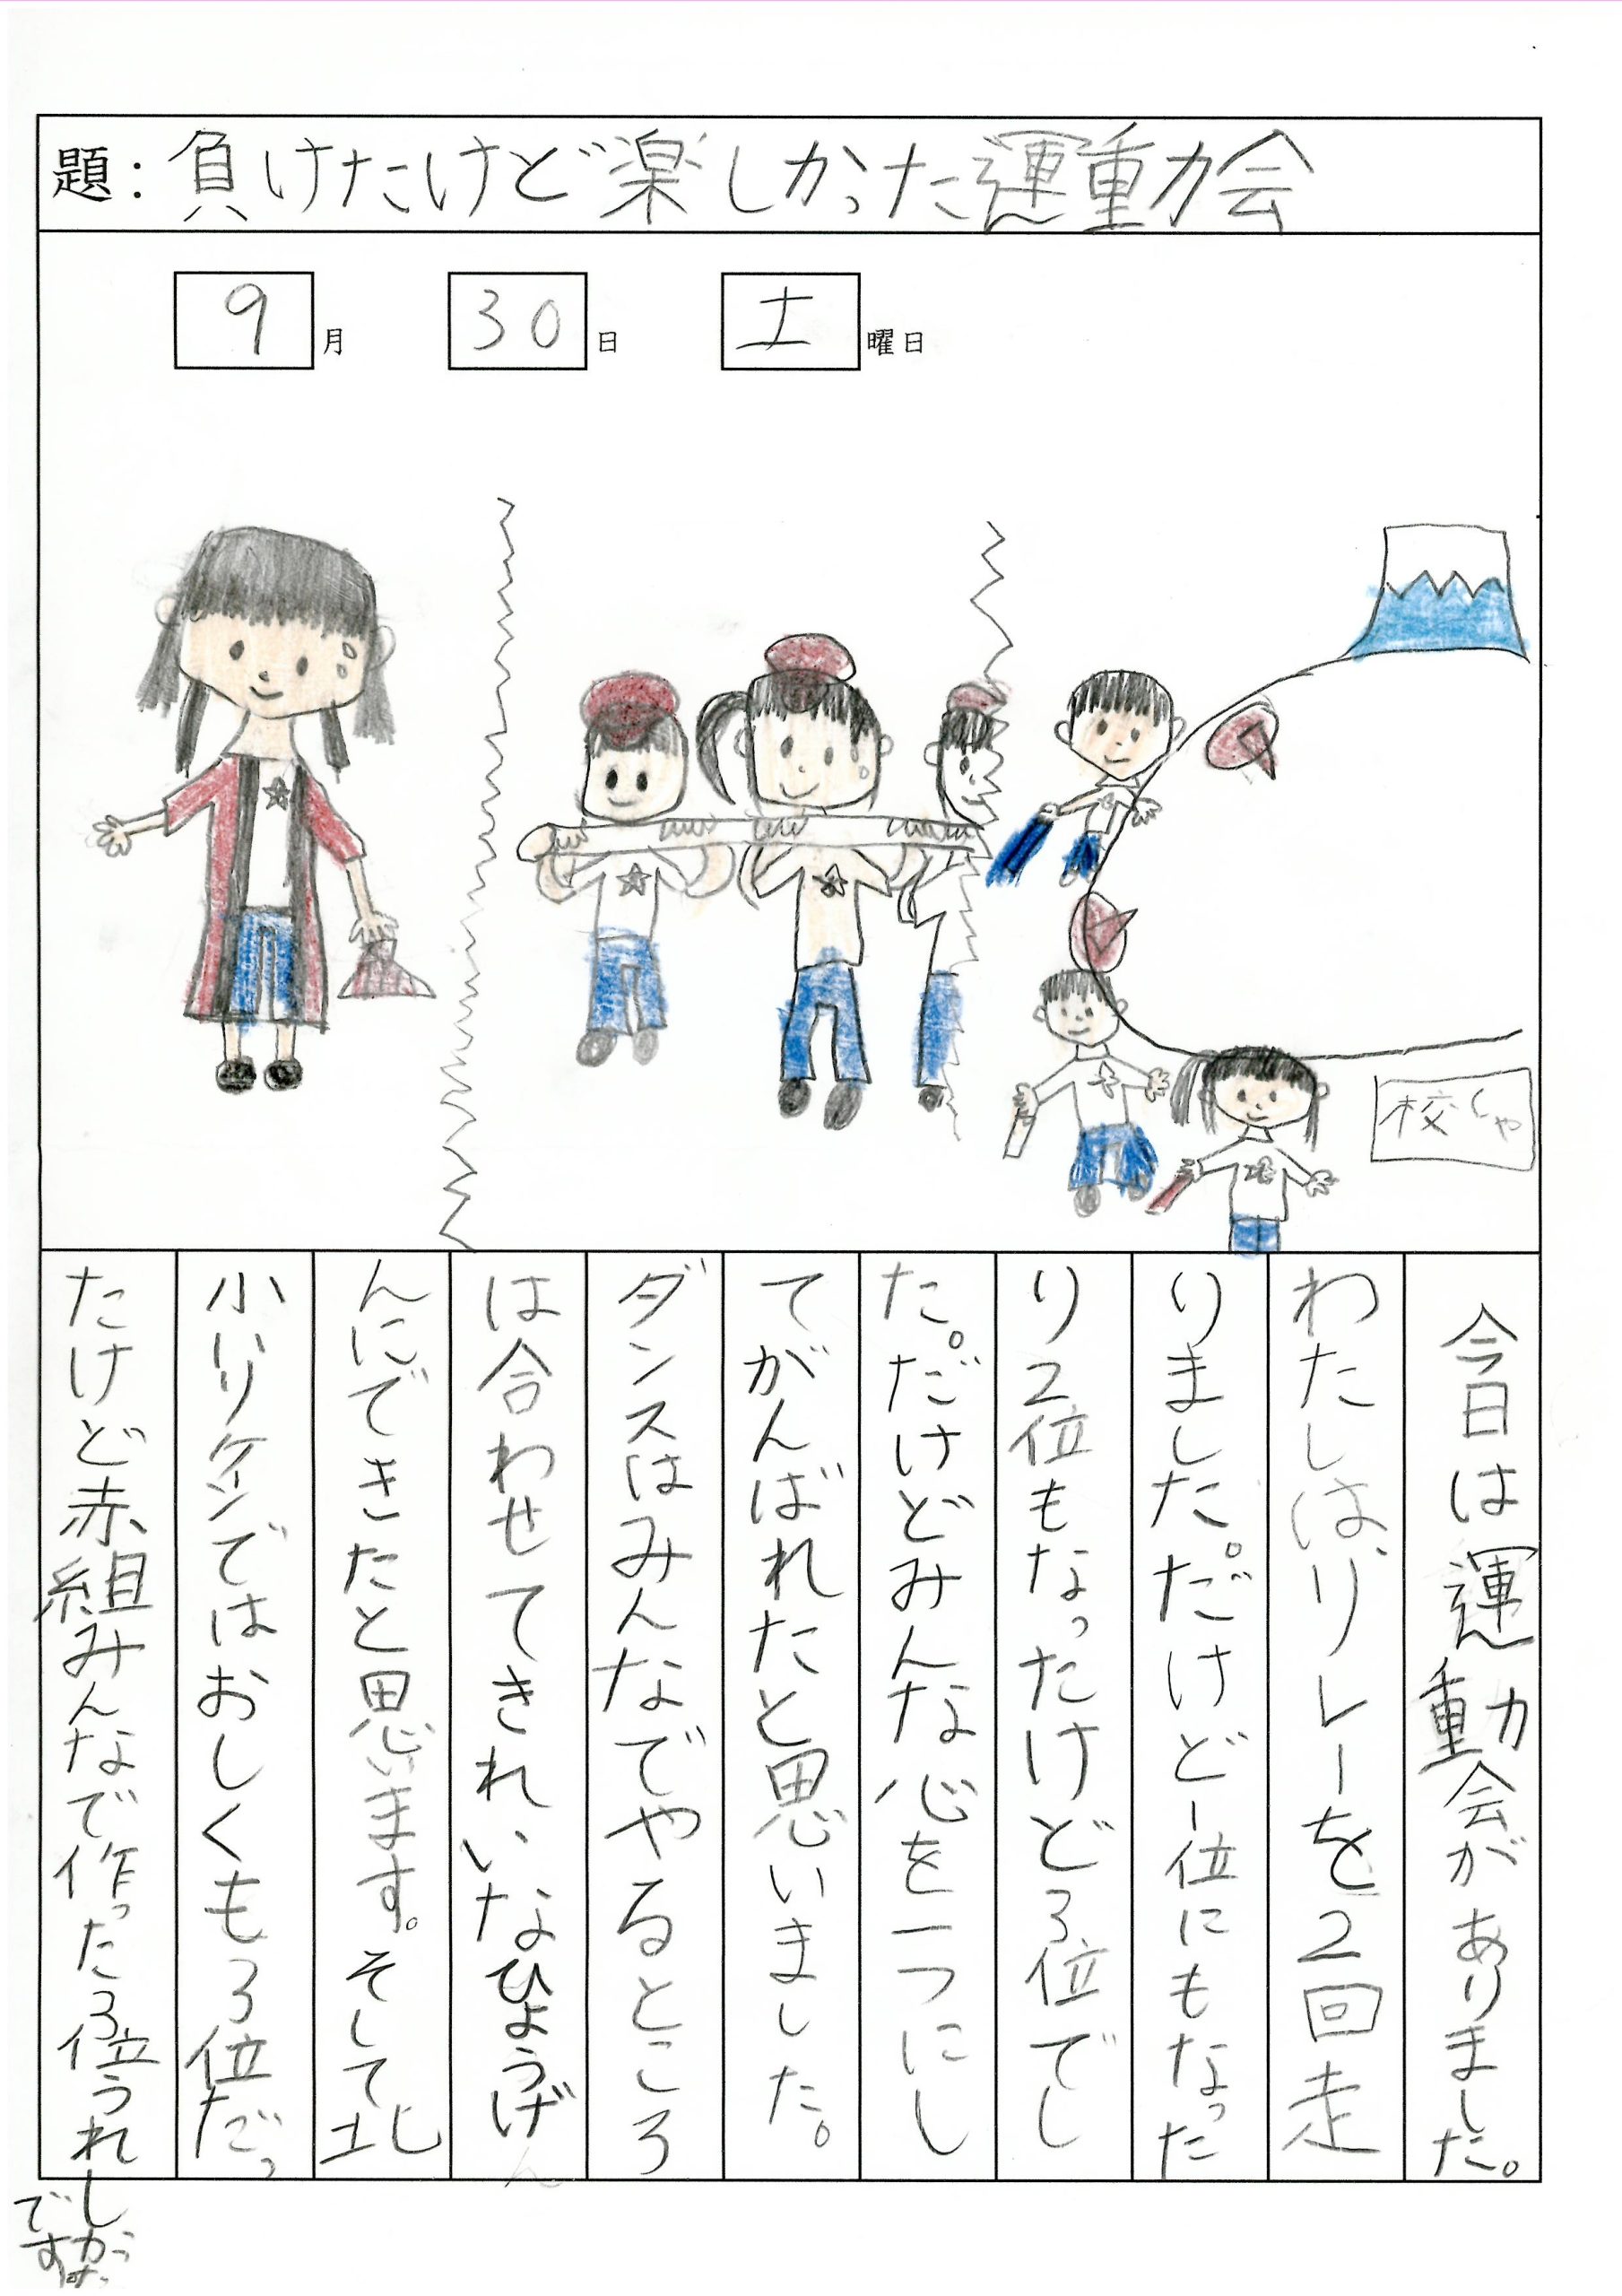 題:負けたけど楽しかった運動会
9月 30日 土曜日
校しゃ
今日は運動会がありました。
わたしは、リレーを2回走
りました。だけど1位にもなった
り2位もなったけど3位でし
た。だけどみんな心を一つにし
てがんばれたと思いました。
ダンスはみんなでやるところ
は合わせてきれいなひょうげ
んにできたと思います。そして北
小ハリケーンではおしくも3位だっ
たけど赤組みんなで作った3位うれしかった
です